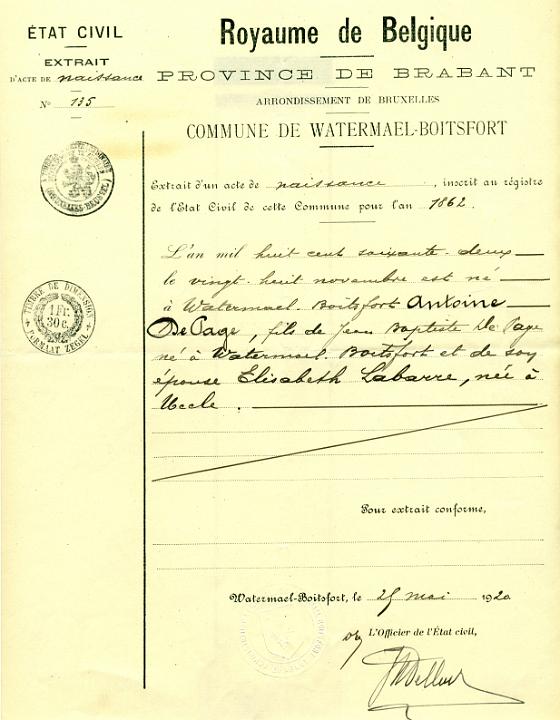 ÉTAT CIVIL
EXTRAIT
D'ACTE DE naissance
N° 135
Royaume de Belgique
PROVINCE DE BRABANT
ARRONDISSEMENT DE BRUXELLES
COMMUNE DE WATERMAEL-BOITSFORT
Extrait d'un acte de naissance, inscrit au régistre
de l'Etat Civil de cette Commune pour l'an 1862.
L'an mil huit cent soixante-deux
le vingt-huit novembre est né
à Watermael-Boitsfort Antoine
De Cage, fils de Jean Baptiste De Cage
né à Watermael-Boitsfort et de son
épouse Elisabeth Labarre, née à
Uccle.
TIMBRE DE DIMENSION
1 Fr.
30 c.
FORMAAT ZEGEL
Pour extrait conforme,
Watermael-Boitsfort, le 25 mai 1920
L'Officier de l'État civil,